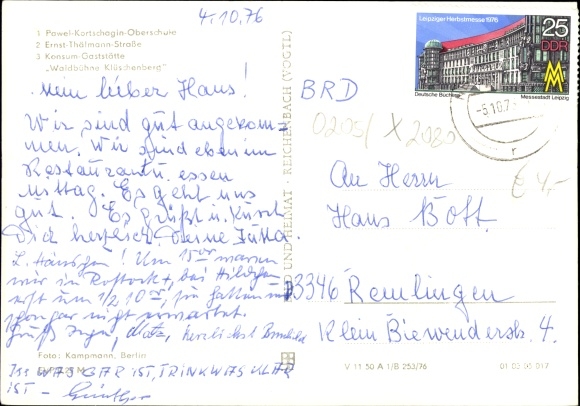 4.10.76
1 Pawel-Kortschagin-Oberschule
2 Ernst-Thälmann-Straße
3 Konsum-Gaststätte
„Waldbühne Klüschenberg"
Mein lieber Hans!
Wir sind gut angekom-
men. Wir sind eben im
Restaurant u. essen
Mittag. Es geht uns
gut. Es grüßt u. küsst
Dich herzlich Deine Jutta
L. Hänschen! Um 15 00 waren
wir in Rostock, bei
erst um 1/2 10
nicht
herzlichst
Foto: Kampmann, Berlin
Iss WAS GAR IST, TRINK WAS KLAR
IST - Günther
UND HEIMAT · REICHENBACH (VOGTL)
Leipziger Herbstmesse 1976
25
DDR
Deutsche Bücherei
Messestadt Leipzig
-5.10.7
BRD
0205/ X 2080
€ 4,-
An Herrn
Hans Bott
3346 Remlingen
Klein Biewenderstr. 4.
V 11 50 A 1/B 253/76
01 03 05 017